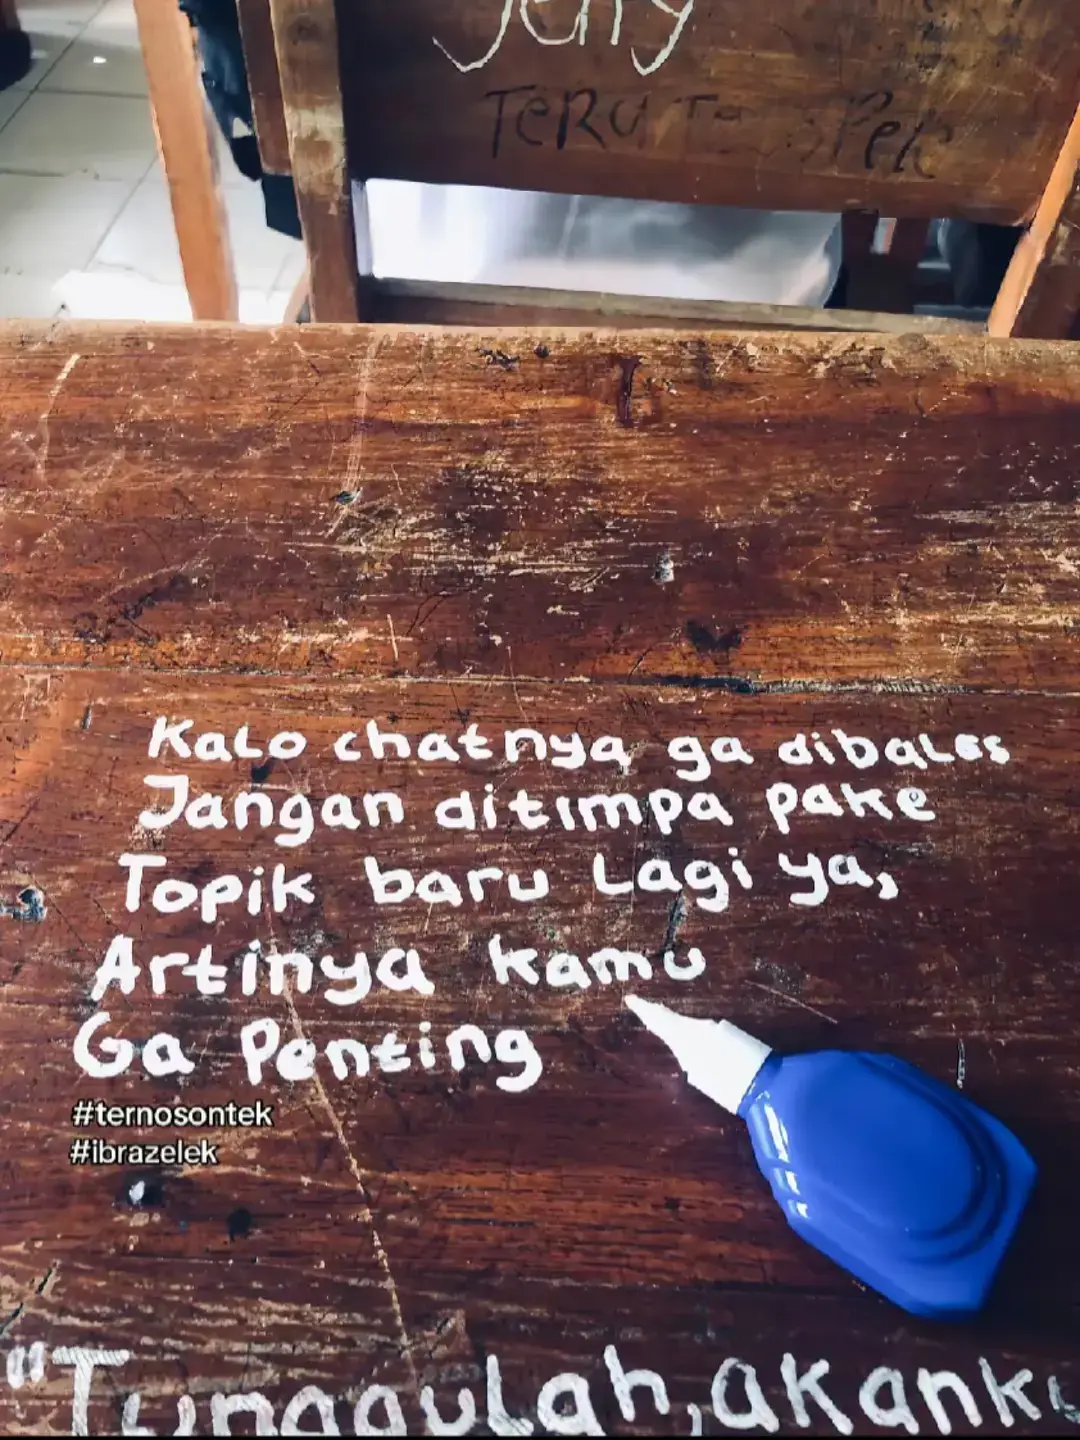 Jerry
TERU
Kalo chatnya ga dibales
Jangan ditimpa pake
Topik baru Lagi ya,
Artinya kamu
Ga Penting
#ternosontek
#ibrazelek
"Tunggulah, akanku